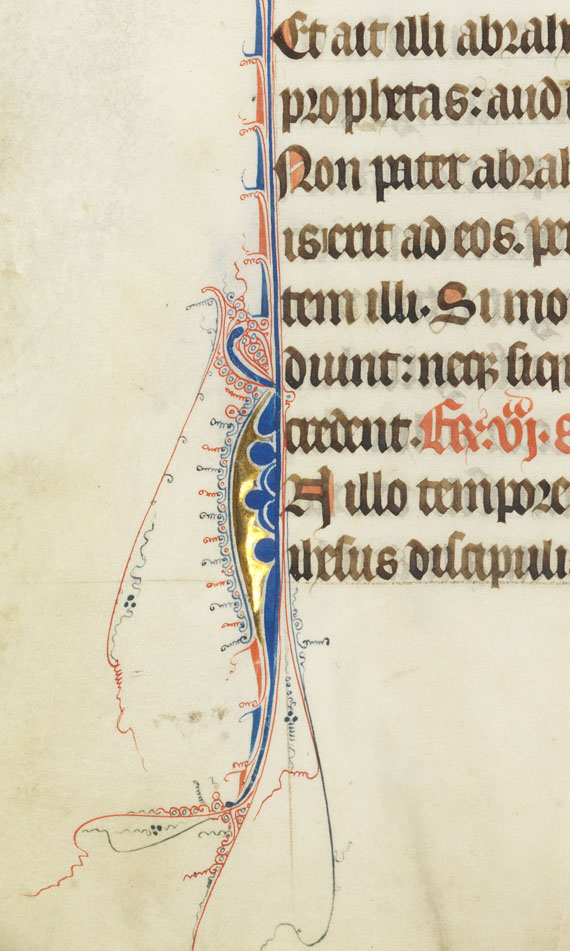 Et ait illi abrah
prophetas: audi
Non pater abrah
ierit ad eos. pe
tem illi. Si mo
diunt: neqꝫ siq
credent. Fr̃. vj.
illo tempore
ihesus discipuli